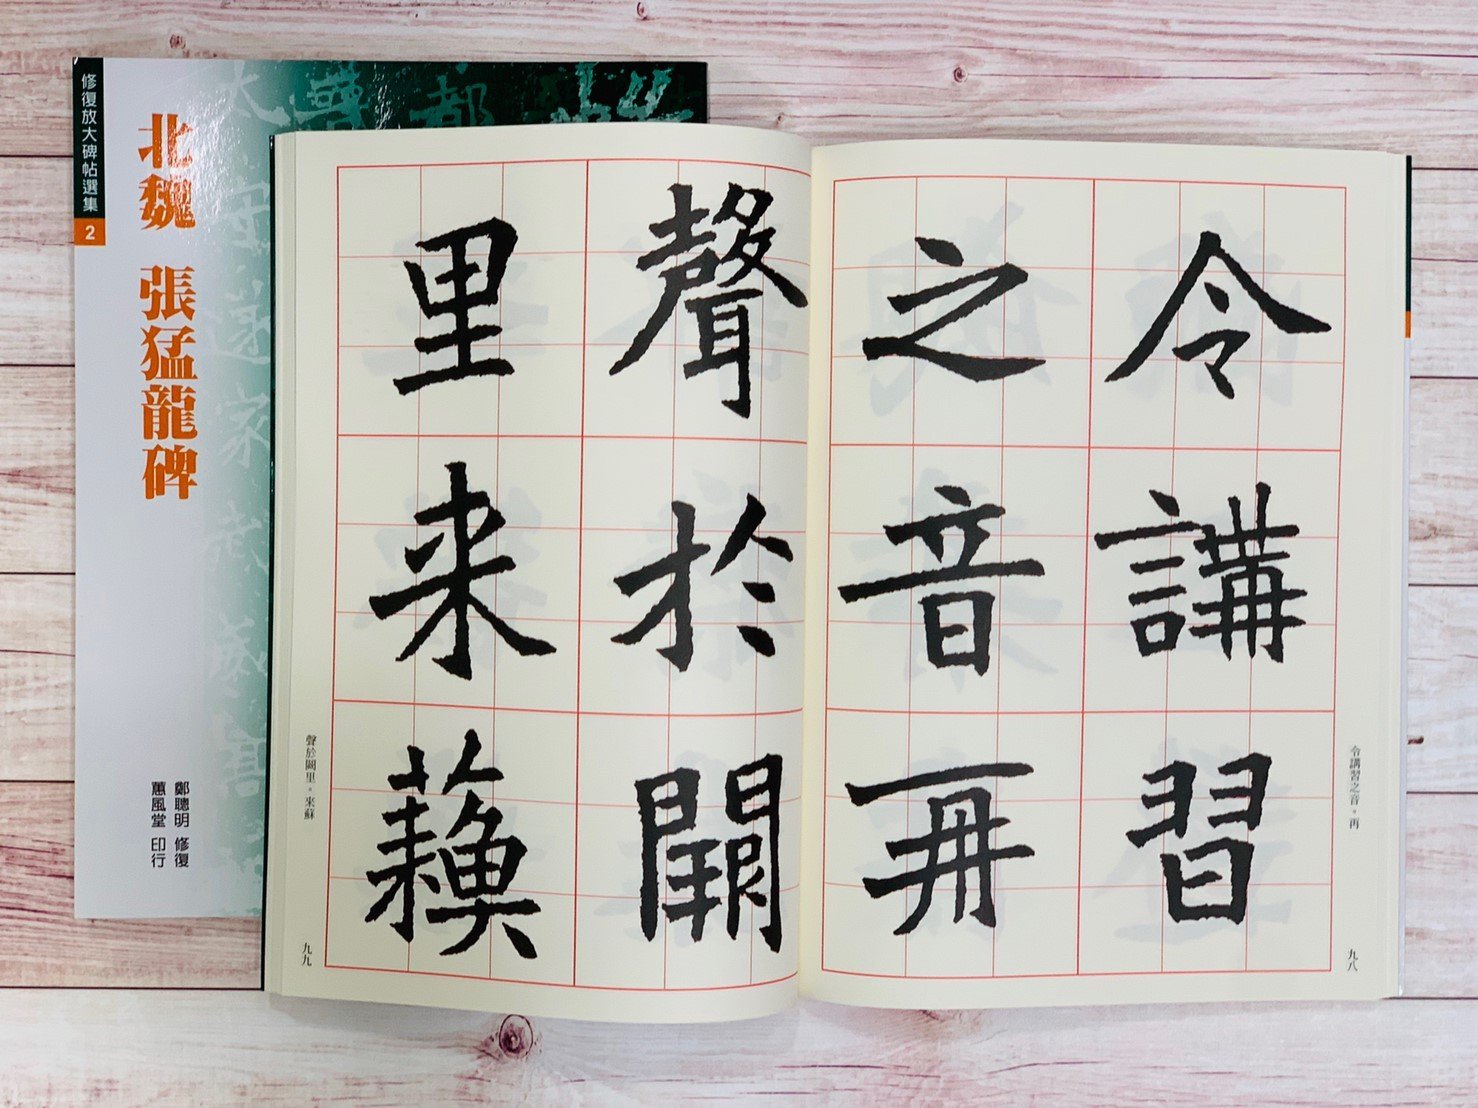 修復放大碑帖選集
2
北魏 張猛龍碑
鄭聰明 修復
蕙風堂 印行
令講習
之音再
聲於闕
里来蘇
令講習之音。再
九八
聲於闕里。來蘇
九九